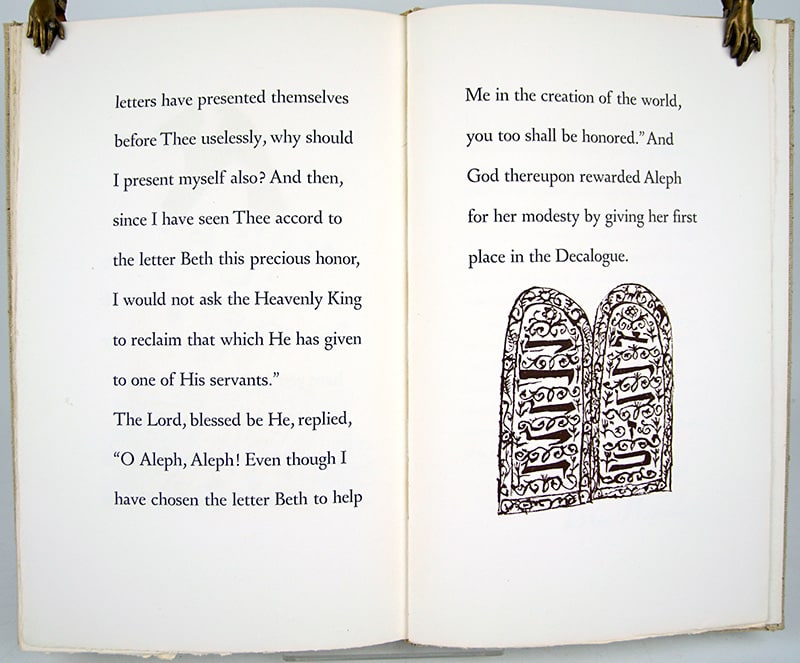 letters have presented themselves
before Thee uselessly, why should
I present myself also? And then,
since I have seen Thee accord to
the letter Beth this precious honor,
I would not ask the Heavenly King
to reclaim that which He has given
to one of His servants.”
The Lord, blessed be He, replied,
“O Aleph, Aleph! Even though I
have chosen the letter Beth to help
Me in the creation of the world,
you too shall be honored.” And
God thereupon rewarded Aleph
for her modesty by giving her first
place in the Decalogue.